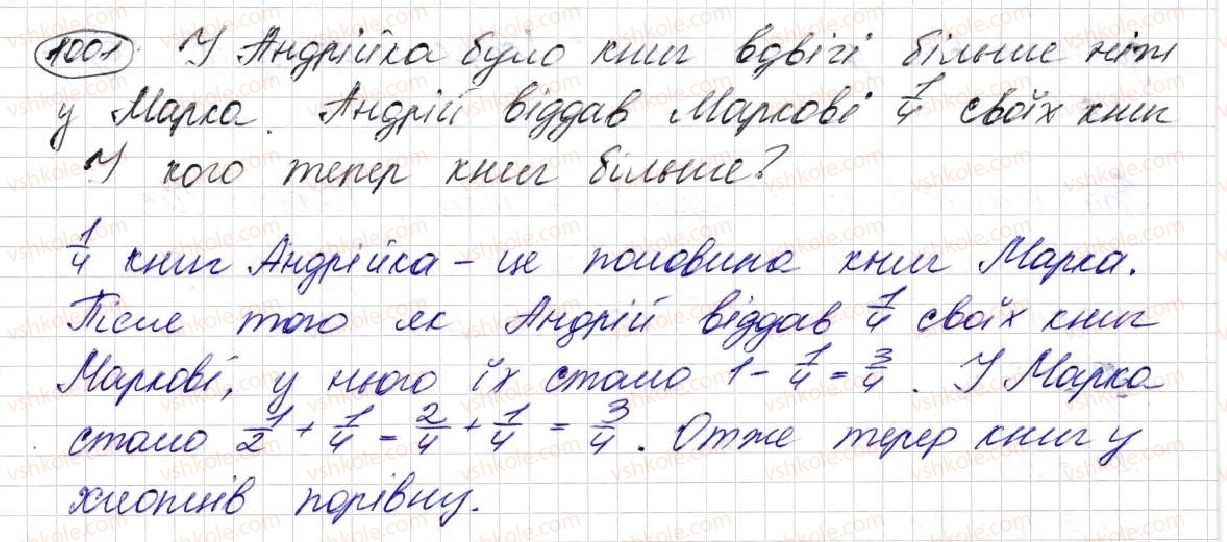 1001. У Андрійка було книг вдвічі більше ніж
у Марка. Андрій віддав Маркові 1/4 своїх книг
У кого тепер книг більше?
1/4 книг Андрійка – це половина книг Марка.
Після того як Андрій віддав 1/4 своїх книг
Маркові, у нього їх стало 1 - 1/4 = 3/4. У Марка
стало 1/2 + 1/4 = 2/4 + 1/4 = 3/4. Отже терер книг у
хлопців порівну.